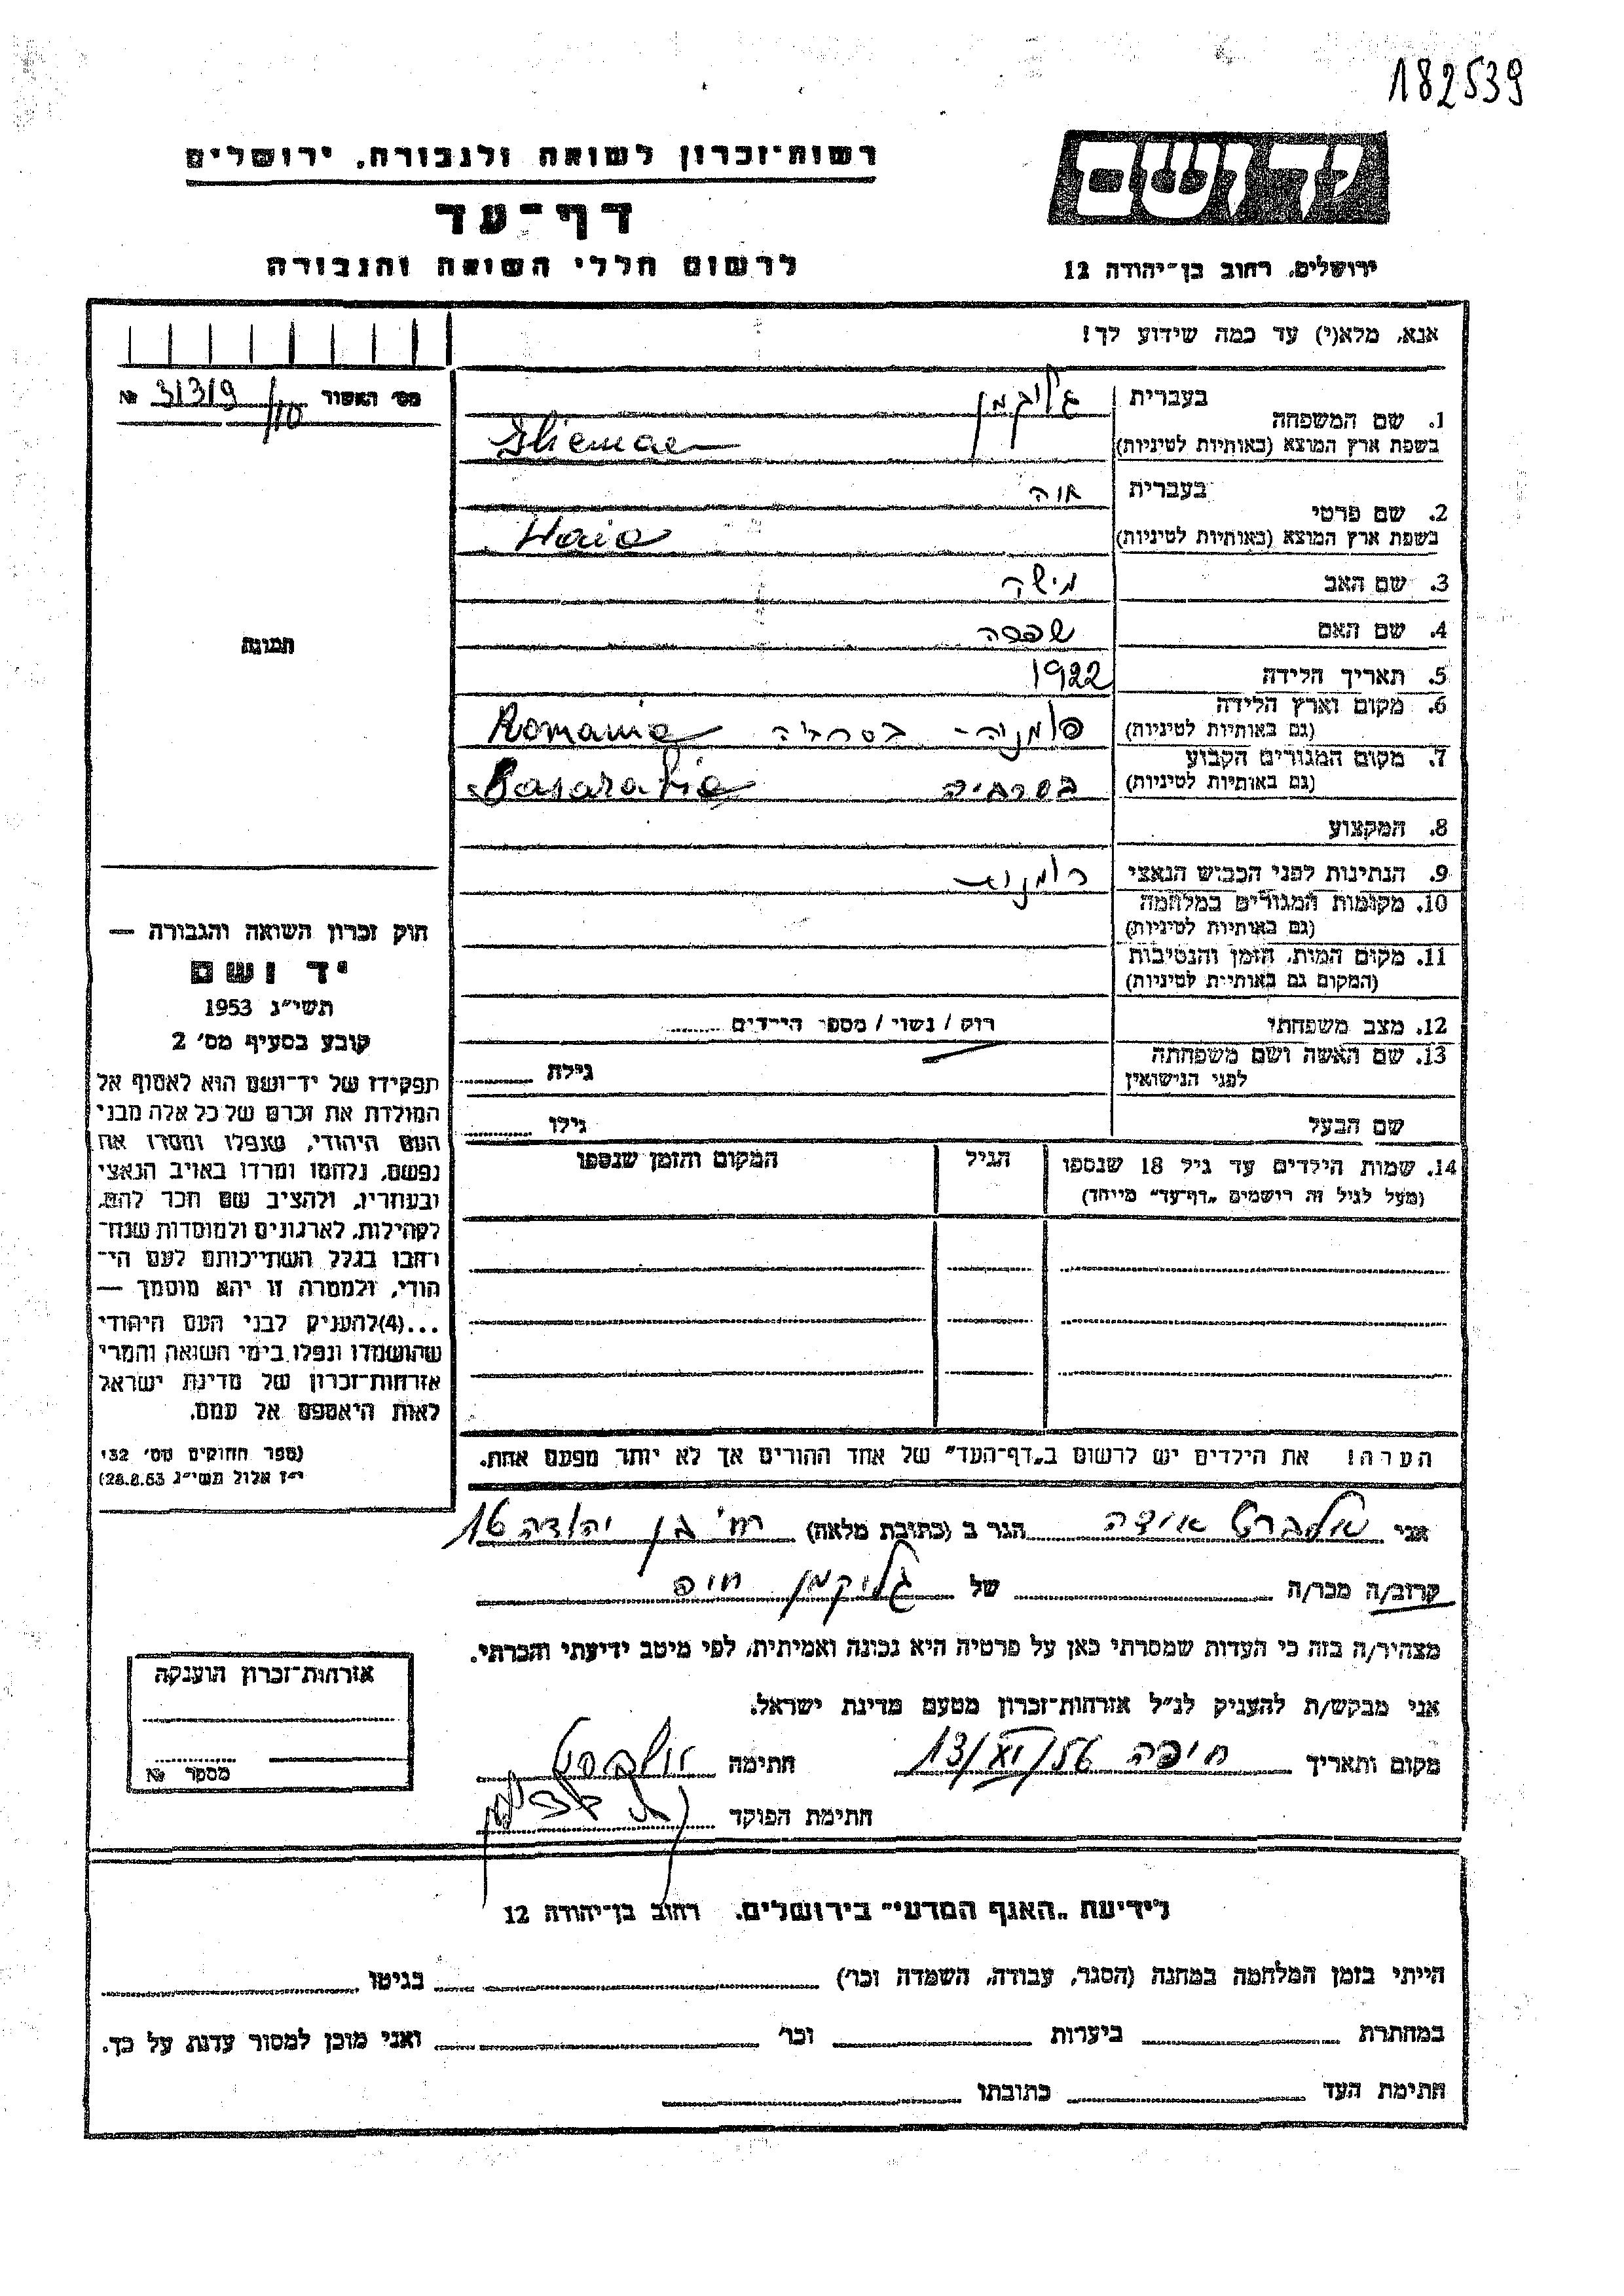 182539
יד ושם
ירושלים, רחוב בן־יהודה 12
רשות־זכרון לשואה ולגבורה, ירושלים
דף־עד
לרשום חללי השואה והגבורה
אנא, מלא(י) עד כמה שידוע לך!
מס׳ האשור 31319/10 №
תמונה
1. שם המשפחה
בעברית גליקמן
בשפת ארץ המוצא (באותיות לטיניות)
2. שם פרטי
בעברית חיה
בשפת ארץ המוצא (באותיות לטיניות) Haia
3. שם האב מישה
4. שם האם
5. תאריך הלידה 1922
6. מקום וארץ הלידה
(גם באותיות לטיניות) רומניה - בסרביה Romania
7. מקום המגורים הקבוע
(גם באותיות לטיניות) בסרביה Basarabia
8. המקצוע
9. הנתינות לפני הכבוש הנאצי
10. מקומות המגורים במלחמה
(גם באותיות לטיניות)
11. מקום המות, הזמן והנסיבות
(המקום גם באותיות לטיניות)
12. מצב משפחתי רווק / נשוי / מספר הילדים
13. שם האשה ושם משפחתה
לפני הנישואין גילה
שם הבעל גילו
14. שמות הילדים עד גיל 18 שנספו הגיל המקום והזמן שנספו
(מעל לגיל זה רושמים „דף־עד” מיוחד)
הערה! את הילדים יש לרשום ב„דף־העד” של אחד ההורים אך לא יותר מפעם אחת.
חוק זכרון השואה והגבורה —
יד ושם
תשי״ג 1953
קובע בסעיף מס׳ 2
תפקידו של יד־ושם הוא לאסוף אל
המולדת את זכרם של כל אלה מבני
העם היהודי, שנפלו ומסרו את
נפשם, נלחמו ומרדו באויב הנאצי
ובעוזריו, ולהציב שם וזכר להם,
לקהילות, לארגונים ולמוסדות שנח־
רבו בגלל השתייכותם לעם הי־
הודי, ולמטרה זו יהא מוסמך —
...(4) להעניק לבני העם היהודי
שהושמדו ונפלו בימי השואה והמרי
אזרחות־זכרון של מדינת ישראל
לאות היאספם אל עמם.
(ספר החוקים מס׳ 132
י״ז אלול תשי״ג 28.8.53)
אני אלברט אידה הגר ב (כתובת מלאה) רח׳ בן יהודה 16
קרוב/ה מכר/ה של גליקמן חיה
מצהיר/ה בזה כי העדות שמסרתי כאן על פרטיה היא נכונה ואמיתית, לפי מיטב ידיעתי והכרתי.
אני מבקש/ת להעניק לנ״ל אזרחות־זכרון מטעם מדינת ישראל.
מקום ותאריך חיפה 13/XI/56 חתימה אלברט
חתימת הפוקד
אזרחות־זכרון הוענקה
מספר №
לידיעת „האגף המדעי” בירושלים, רחוב בן־יהודה 12
הייתי בזמן המלחמה במחנה (הסגר, עבודה, השמדה וכו׳) בגיטו
במחתרת ביערות וכו׳ ואני מוכן למסור עדות על כך.
חתימת העד כתובתו